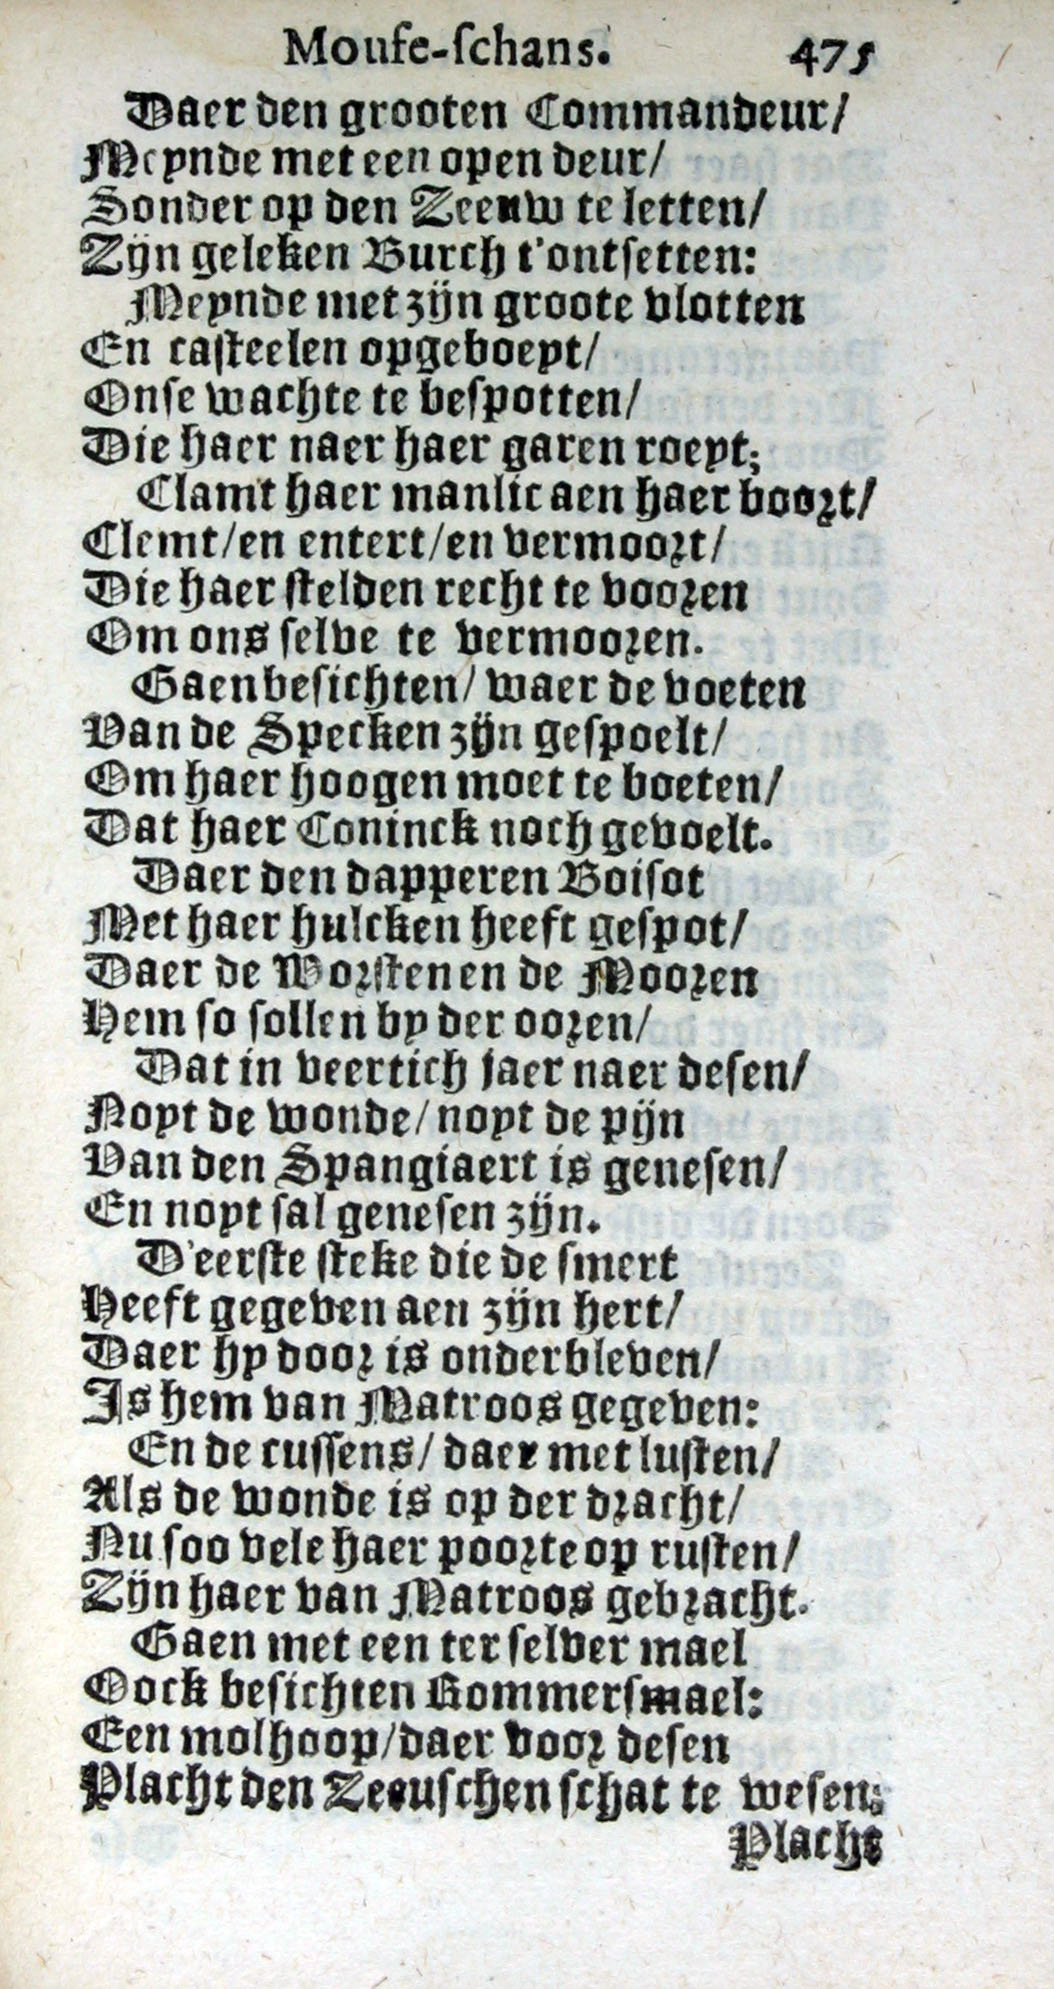 Mouse-schans. 475
Daer den grooten Commandeur/
Meynde met een open deur/
Sonder op den Zeeuw te letten/
Zijn geleken Burch t'ontsetten:
Meynde met zijn groote vlotten
En casteelen opgeboeyt/
Onse wachte te bespotten/
Die haer naer haer garen roeyt;
Clamt haer manlic aen haer boort/
Clemt/en entert/en vermoort/
Die haer stelden recht te vooren
Om ons selve te vermooren.
Gaen besichten/ waer de voeten
Van de Specken zijn gespoelt/
Om haer hoogen moet te boeten/
Dat haer Coninck noch gevoelt.
Daer den dapperen Boisot
Met haer hulcken heeft gespot/
Daer de Worsten en de Mooren
Hem so sollen by der ooren/
Dat in veertich jaer naer desen/
Noyt de wonde/ noyt de pijn
Van den Spangiaert is genesen/
En noyt sal genesen zijn.
D'eerste steke die de smert
Heeft gegeven aen zijn hert/
Daer hy door is onderbleven/
Is hem van Matroos gegeven:
En de cussens/ daer met lusten/
Als de wonde is op der dracht/
Nu soo vele haer poorte op rusten/
Zijn haer van Matroos gebracht.
Gaen met een ter selver mael
Oock besichten Rommersmael:
Een molhoop/daer voor desen
Placht den Zeeuschen schat te wesen;
Placht